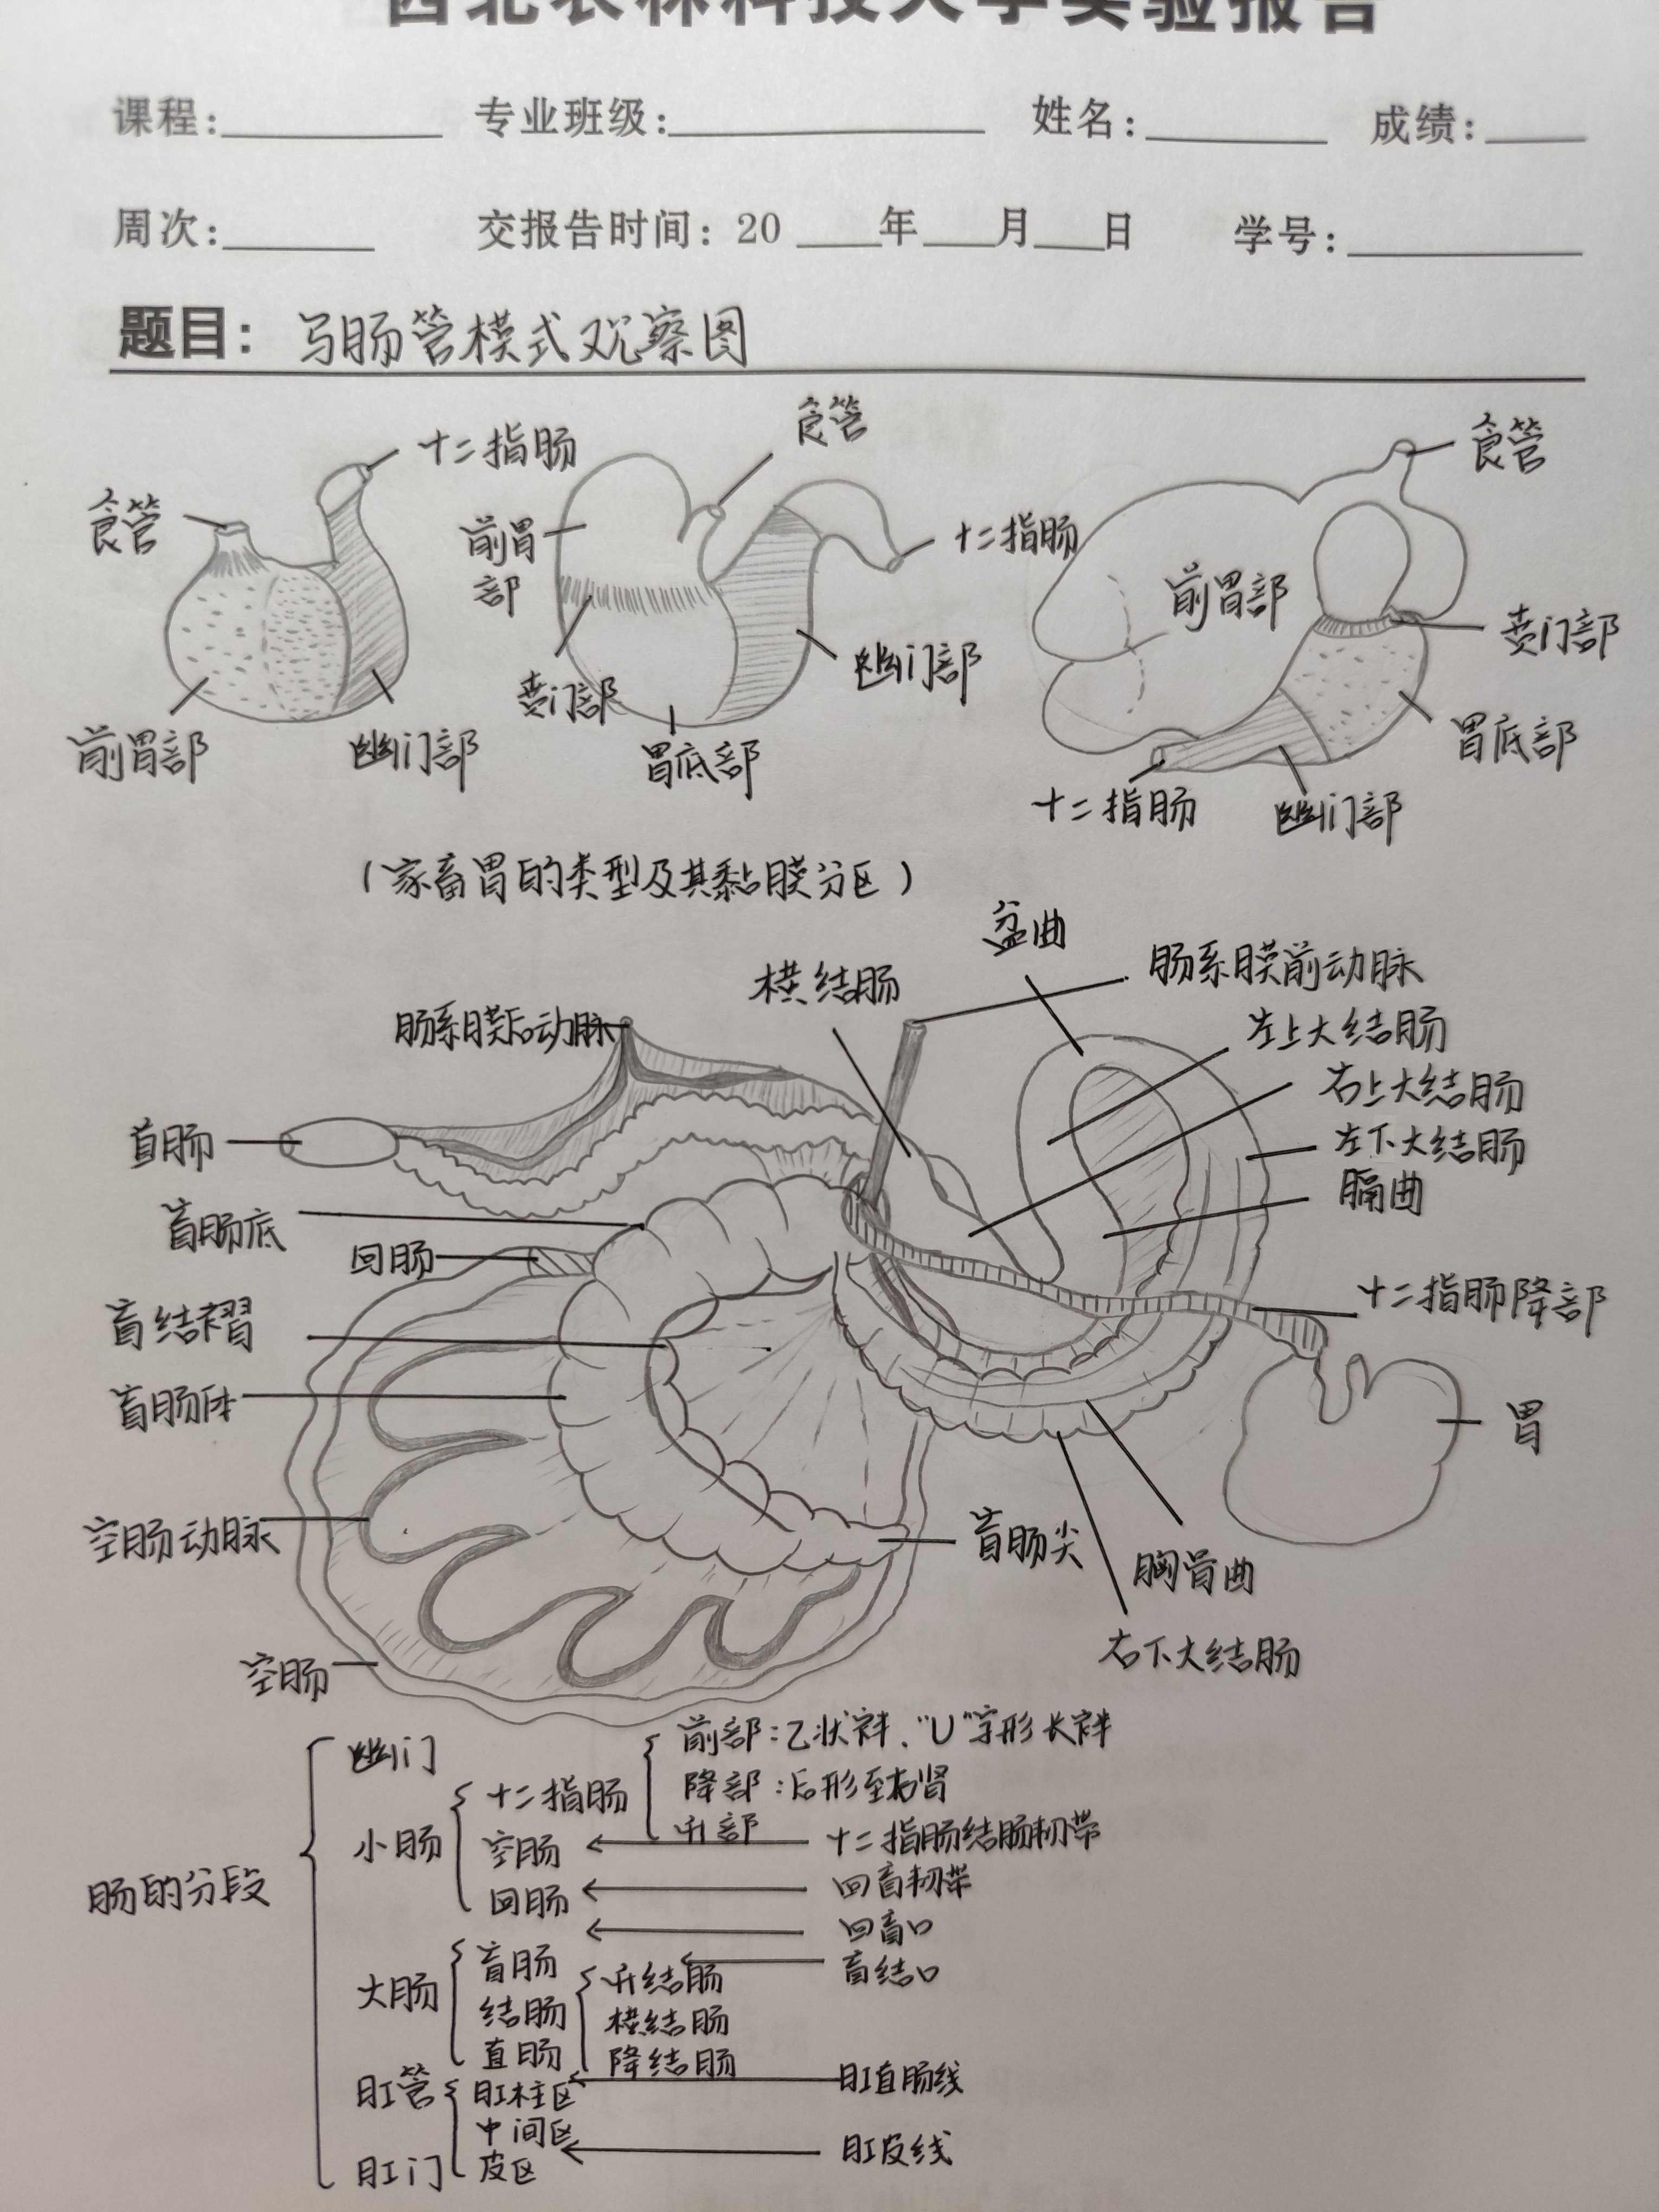 西北农林科技大学实验报告
课程: 专业班级: 姓名: 成绩:
周次: 交报告时间: 20 年 月 日 学号:
题目: 马肠管模式观察图
食管
十二指肠
前胃部
幽门部
食管
前胃部
十二指肠
贲门部
幽门部
胃底部
食管
前胃部
贲门部
胃底部
十二指肠
幽门部
(家畜胃的类型及其黏膜分区)
盆曲
横结肠
肠系膜前动脉
肠系膜后动脉
左上大结肠
右上大结肠
左下大结肠
膈曲
盲肠底
回肠
盲结褶
十二指肠降部
盲肠体
胃
空肠动脉
盲肠尖
胸骨曲
右下大结肠
空肠
肠的分段
幽门
小肠
十二指肠
前部:乙状袢、"U"字形长袢
降部:后形至右肾
升部
空肠
十二指肠结肠韧带
回肠
回盲韧带
回盲口
大肠
盲肠
盲结口
结肠
升结肠
横结肠
降结肠
直肠
肛管
肛柱区
肛直肠线
中间区
皮区
肛皮线
肛门